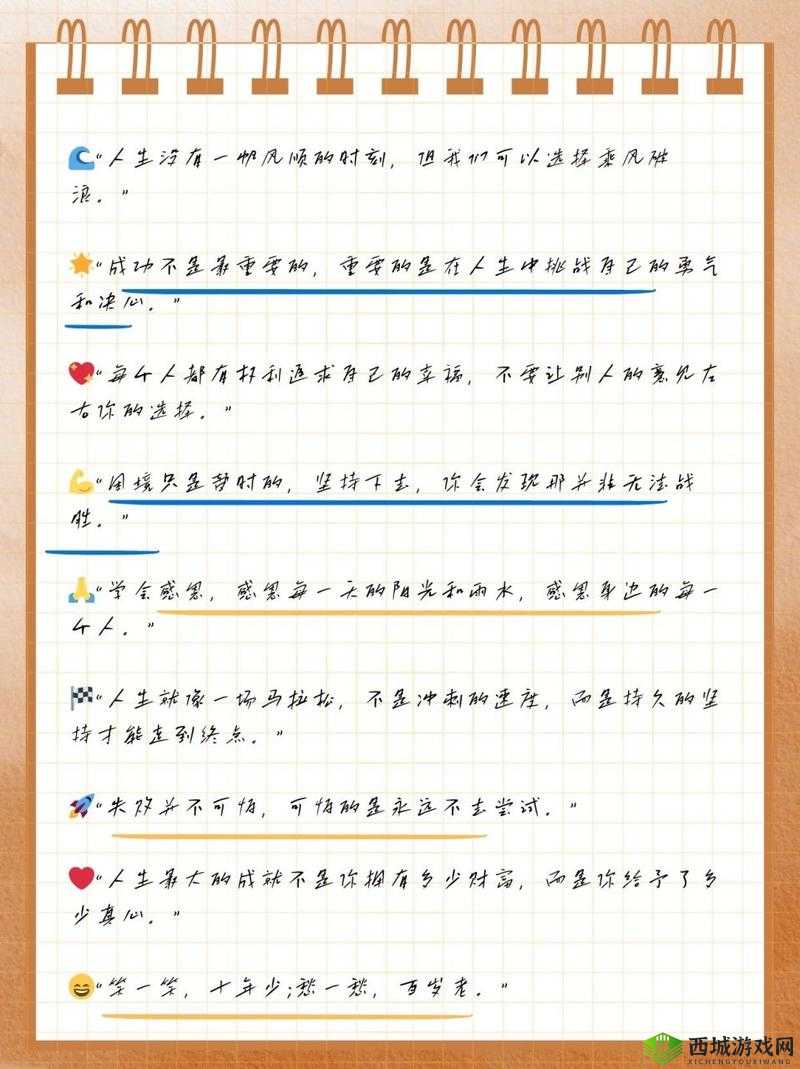 🌊“人生没有一帆风顺的时刻，但我们可以选择乘风破
浪。”
🌟“成功不是最重要的，重要的是在人生中挑战自己的勇气
和决心。”
💖“每个人都有权利追求自己的幸福，不要让别人的意见左
右你的选择。”
💪“困境只是暂时的，坚持下去，你会发现那并非无法战
胜。”
🙏“学会感恩，感恩每一天的阳光和雨水，感恩身边的每一
个人。”
🏁“人生就像一场马拉松，不是冲刺的速度，而是持久的坚
持才能走到终点。”
🚀“失败并不可怕，可怕的是永远不去尝试。”
❤️“人生最大的成就不是你拥有多少财富，而是你给予了多
少真心。”
😄“笑一笑，十年少;愁一愁，百发老。”
西城游戏网
XICHENGYOUXIWANG